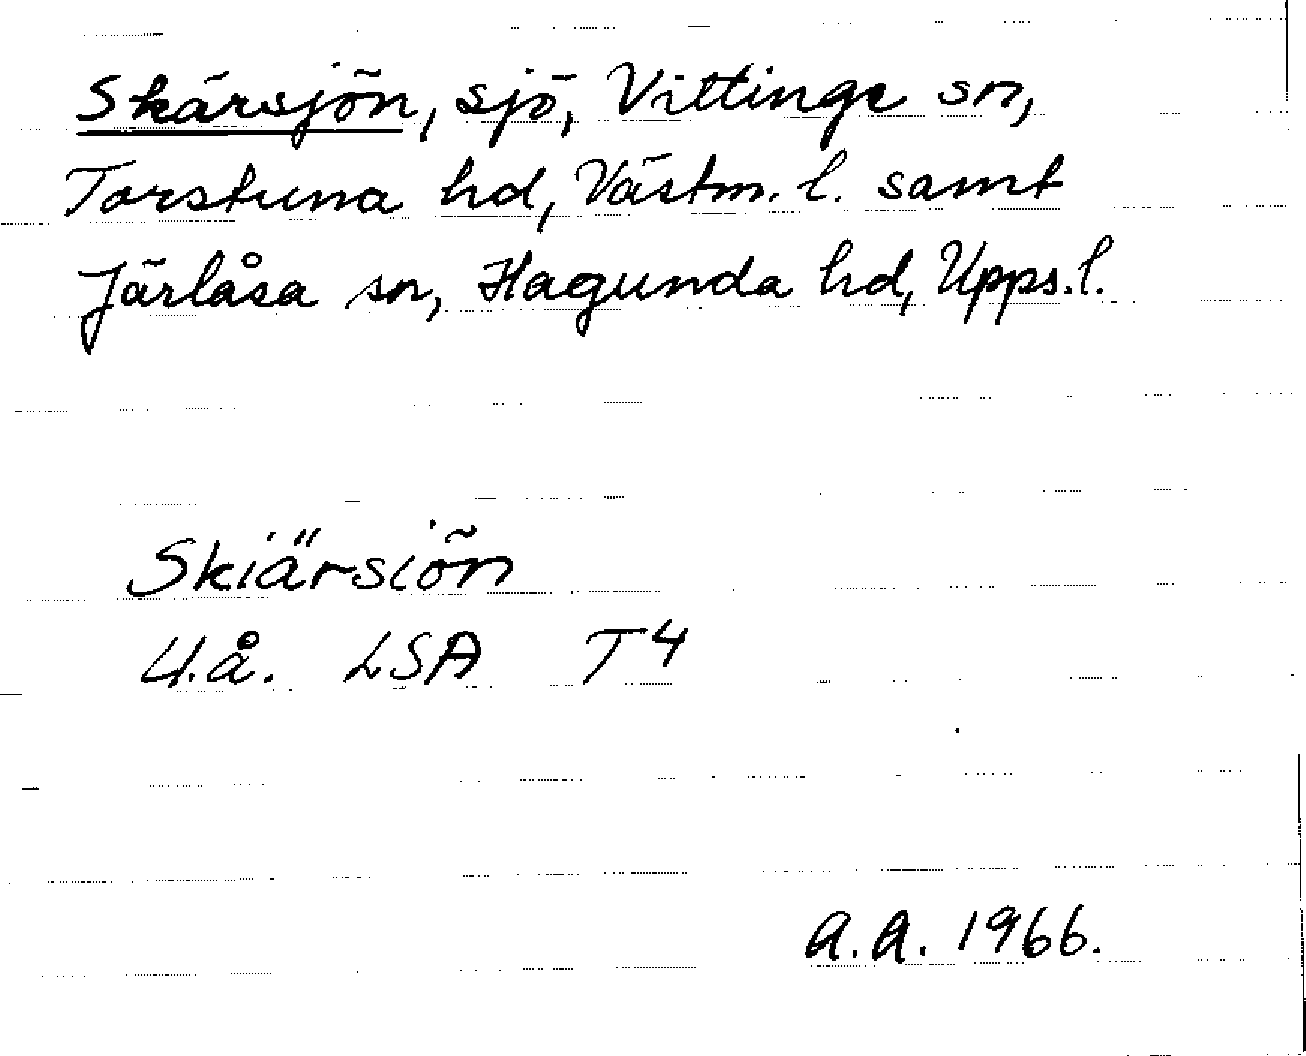 Skärsjön, sjö, Vittinge sn,
Torstuna hd, Västm. l. samt
Järlåsa sn, Hagunda hd, Upps. l.
Skiärsiön
U.å. LSA T4
A.A. 1966.